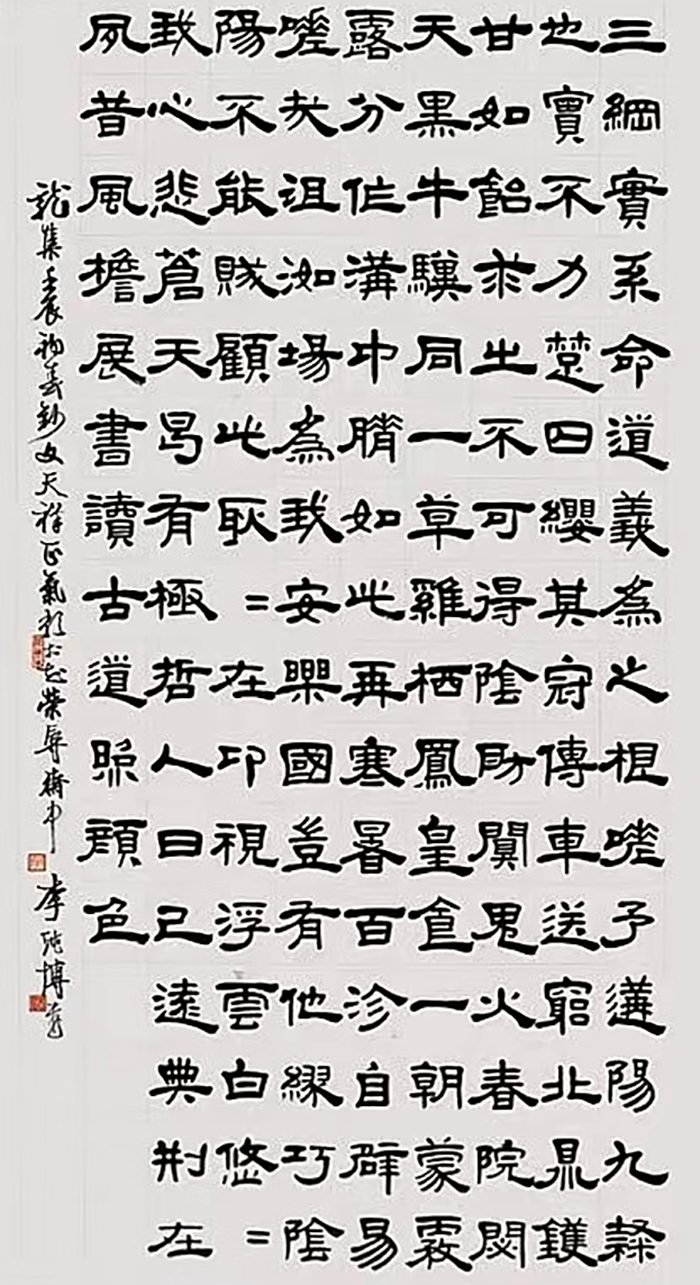 三綱實系命道義為之根嗟予遘陽九隸
也實不力楚囚纓其冠傳車送窮北鼎鑊
甘如飴求之不可得陰房闃鬼火春院閟
天黑牛驥同一草雞栖鳳皇食一朝蒙霧
露分作溝中瘠如此再寒暑百沴自辟易
嗟哉沮洳場為我安樂國豈有他繆巧陰
陽不能賊顧此耿=在卬視浮雲白悠=
我心悲蒼天曷有極哲人日已遠典刑在
夙昔風檐展書讀古道照顏色
龍集壬辰初春鈔文天祥正氣歌于忘榮辱齋中 李博書